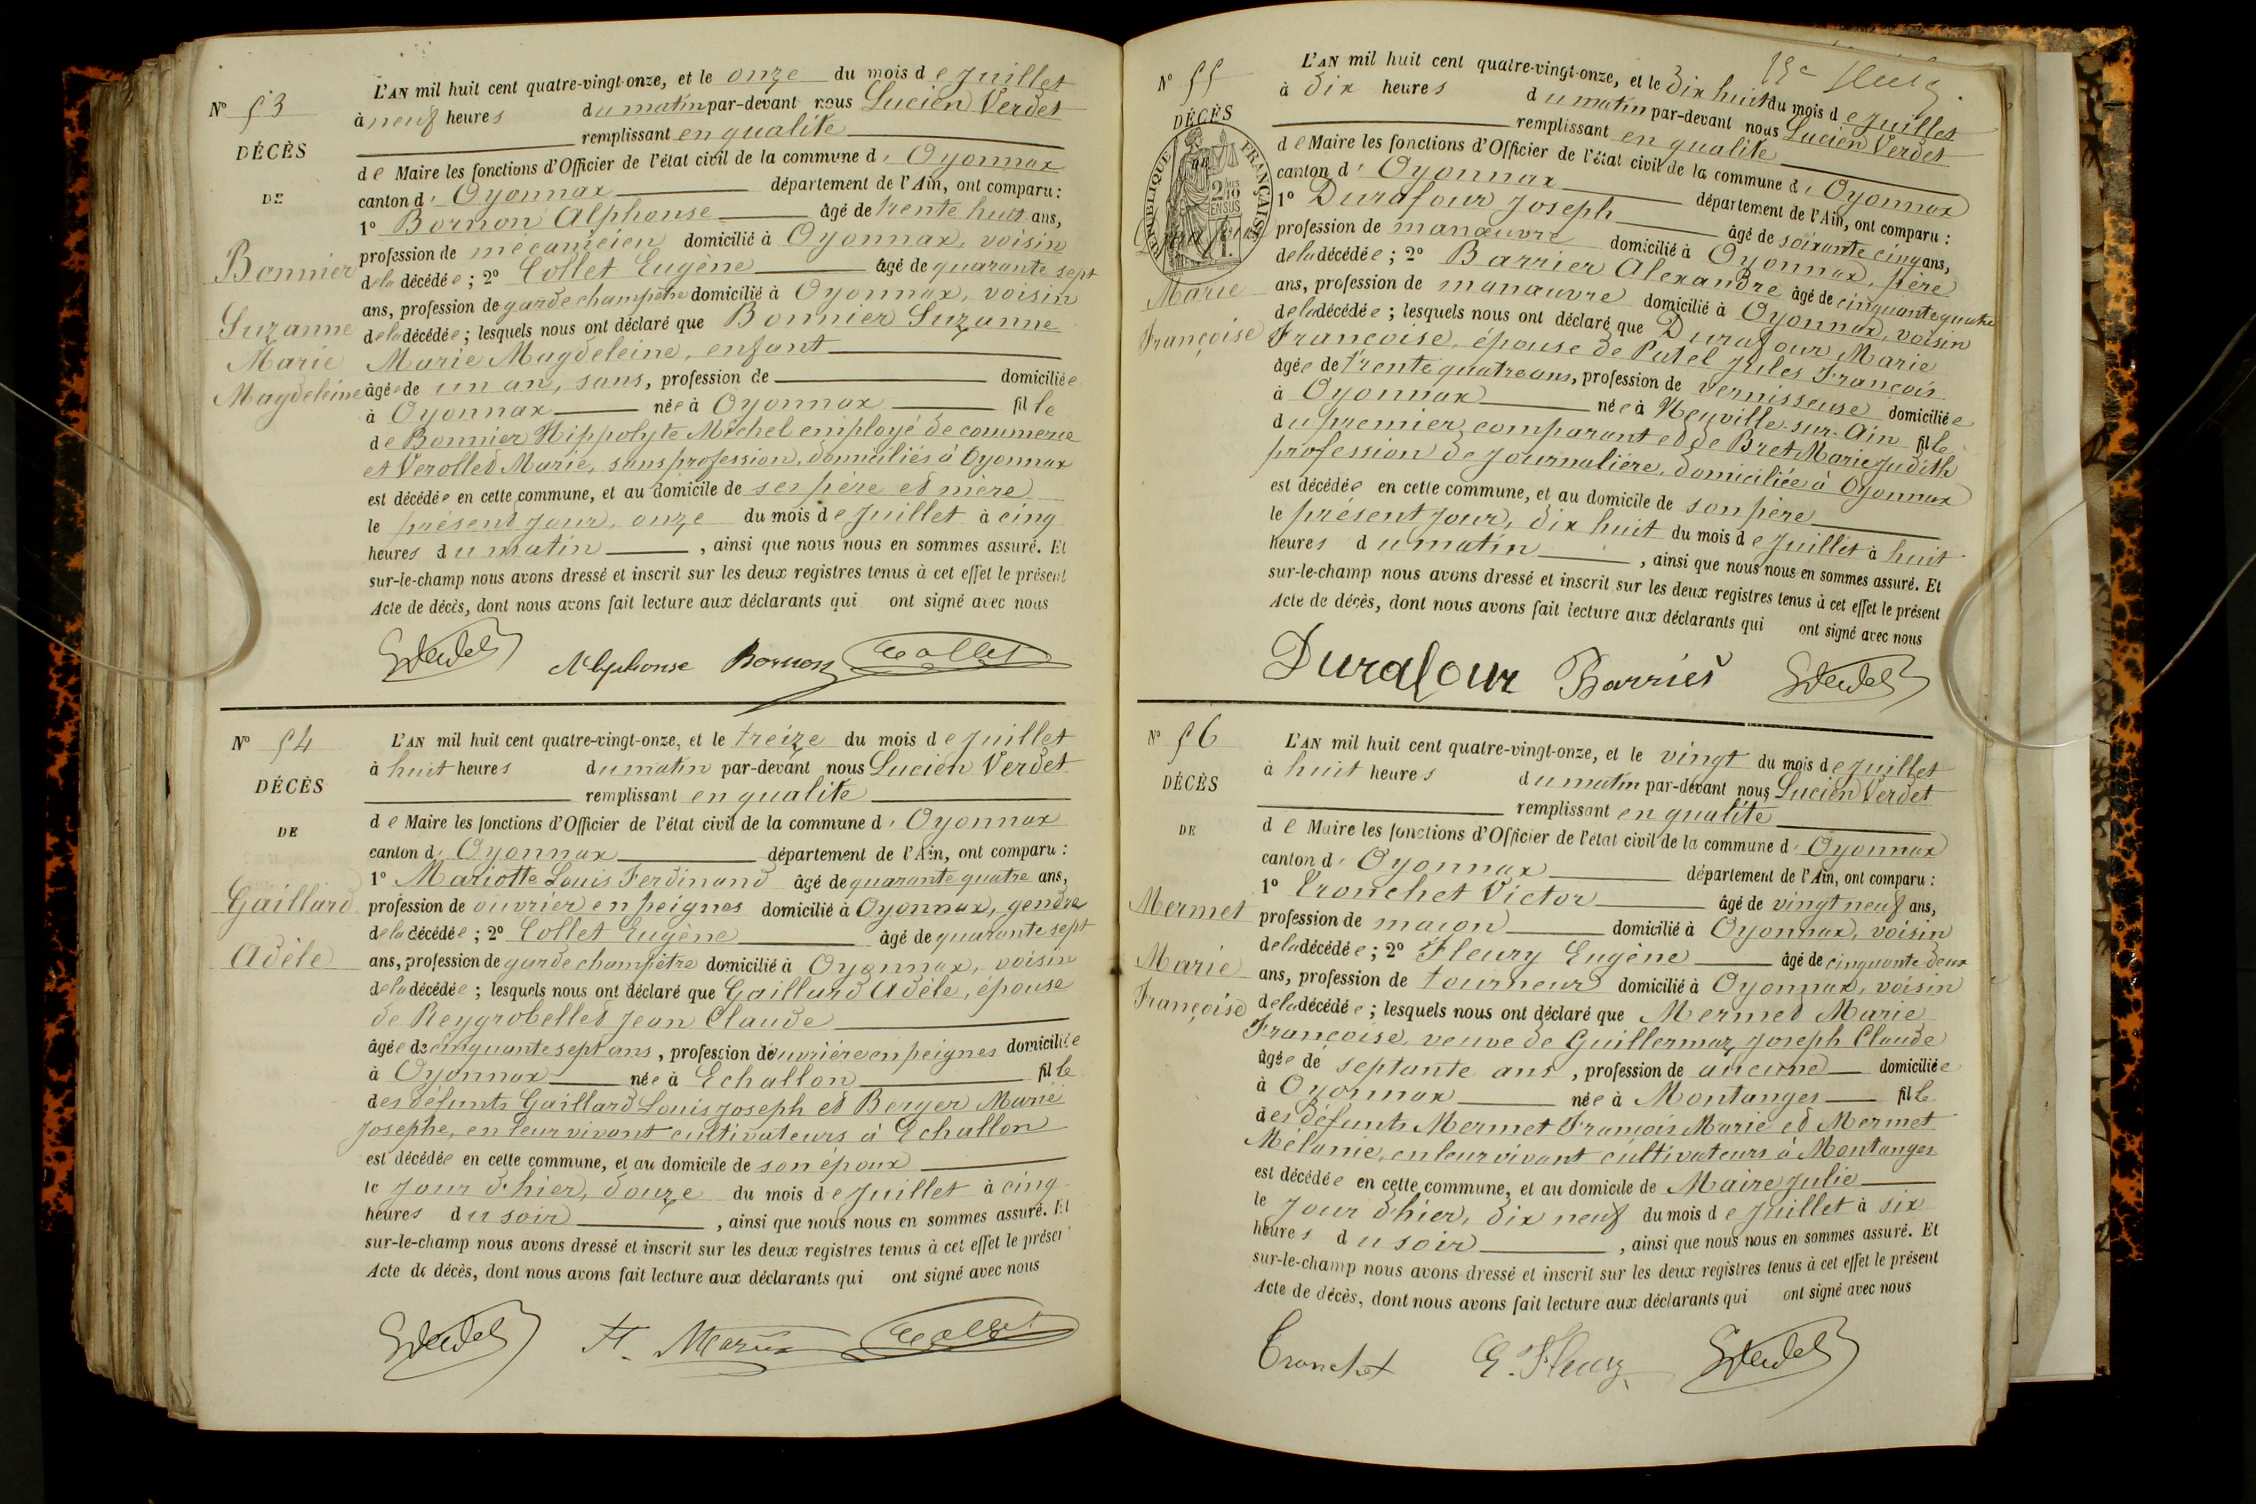 N° 53
DÉCÈS
DE
Bonnier
Suzanne
Marie
Magdeleine
L'AN mil huit cent quatre-vingt-onze, et le onze du mois de Juillet
à neuf heures du matin par-devant nous Lucien Verdet
remplissant en qualité
de Maire les fonctions d'Officier de l'état civil de la commune d'Oyonnax
canton d'Oyonnax département de l'Ain, ont comparu :
1° Bornon Alphonse âgé de trente huit ans,
profession de mécanicien domicilié à Oyonnax, voisin
de la décédée ; 2° Collet Eugène âgé de quarante sept
ans, profession de garde champêtre domicilié à Oyonnax, voisin
de la décédée ; lesquels nous ont déclaré que Bonnier Suzanne
Marie Magdeleine, enfant
âgée de un an, sans, profession de domiciliée
à Oyonnax née à Oyonnax fille
de Bonnier Hippolyte Michel employé de commerce
et Verollet Marie, sans profession, domiciliés à Oyonnax
est décédée en cette commune, et au domicile de ses père et mère
le présent jour, onze du mois de Juillet à cinq
heures du matin , ainsi que nous nous en sommes assuré. Et
sur-le-champ nous avons dressé et inscrit sur les deux registres tenus à cet effet le présent
Acte de décès, dont nous avons fait lecture aux déclarants qui ont signé avec nous
Alphonse Bornon Collet
N° 54
DÉCÈS
DE
Gaillard
Adèle
L'AN mil huit cent quatre-vingt-onze, et le treize du mois de Juillet
à huit heures du matin par-devant nous Lucien Verdet
remplissant en qualité
de Maire les fonctions d'Officier de l'état civil de la commune d'Oyonnax
canton d'Oyonnax département de l'Ain, ont comparu :
1° Mariotte Louis Ferdinand âgé de quarante quatre ans,
profession de ouvrier en peignes domicilié à Oyonnax, gendre
de la décédée ; 2° Collet Eugène âgé de quarante sept
ans, profession de garde champêtre domicilié à Oyonnax, voisin
de la décédée ; lesquels nous ont déclaré que Gaillard Adèle, épouse
de Reygrobellet Jean Claude
âgée de cinquante sept ans, profession de ouvrière en peignes domiciliée
à Oyonnax née à Echallon fille
des défunts Gaillard Louis Joseph et Berger Marie
Josephe, en leur vivant cultivateurs à Echallon
est décédée en cette commune, et au domicile de son époux
le jour d'hier, douze du mois de Juillet à cinq
heures du soir , ainsi que nous nous en sommes assuré. Et
sur-le-champ nous avons dressé et inscrit sur les deux registres tenus à cet effet le présent
Acte de décès, dont nous avons fait lecture aux déclarants qui ont signé avec nous
Collet
N° 55
DÉCÈS
RÉPUBLIQUE FRANÇAISE
2 10
EN SUS
Durafour
Marie
Françoise
L'AN mil huit cent quatre-vingt-onze, et le dix huit du mois de Juillet
à dix heures du matin par-devant nous Lucien Verdet
remplissant en qualité
de Maire les fonctions d'Officier de l'état civil de la commune d'Oyonnax
canton d'Oyonnax département de l'Ain, ont comparu :
1° Durafour Joseph âgé de soixante cinq ans,
profession de manœuvre domicilié à Oyonnax, père
de la décédée ; 2° Barrier Alexandre âgé de cinquante quatre
ans, profession de manœuvre domicilié à Oyonnax, voisin
de la décédée ; lesquels nous ont déclaré que Durafour Marie
Françoise, épouse de Patel Jules François
âgée de trente quatre ans, profession de vernisseuse domiciliée
à Oyonnax née à Neuville-sur-Ain fille
du premier comparant et de Bret Marie Judith
profession de journalière, domiciliée à Oyonnax
est décédée en cette commune, et au domicile de son père
le présent jour, dix huit du mois de Juillet à huit
heures du matin , ainsi que nous nous en sommes assuré. Et
sur-le-champ nous avons dressé et inscrit sur les deux registres tenus à cet effet le présent
Acte de décès, dont nous avons fait lecture aux déclarants qui ont signé avec nous
Durafour Barrier
N° 56
DÉCÈS
DE
Mermet
Marie
Françoise
L'AN mil huit cent quatre-vingt-onze, et le vingt du mois de Juillet
à huit heures du matin par-devant nous Lucien Verdet
remplissant en qualité
de Maire les fonctions d'Officier de l'état civil de la commune d'Oyonnax
canton d'Oyonnax département de l'Ain, ont comparu :
1° Tronchet Victor âgé de vingt neuf ans,
profession de maçon domicilié à Oyonnax, voisin
de la décédée ; 2° Fleury Eugène âgé de cinquante deux
ans, profession de tourneur domicilié à Oyonnax, voisin
de la décédée ; lesquels nous ont déclaré que Mermet Marie
Françoise, veuve de Guillermoz Joseph Claude
âgée de septante ans, profession de aucune domiciliée
à Oyonnax née à Montanges fille
des défunts Mermet François Marie et Mermet
Mélanie, en leur vivant cultivateurs à Montanges
est décédée en cette commune, et au domicile de Maire Julie
le jour d'hier, dix neuf du mois de Juillet à six
heures du soir , ainsi que nous nous en sommes assuré. Et
sur-le-champ nous avons dressé et inscrit sur les deux registres tenus à cet effet le présent
Acte de décès, dont nous avons fait lecture aux déclarants qui ont signé avec nous
Tronchet E. Fleury